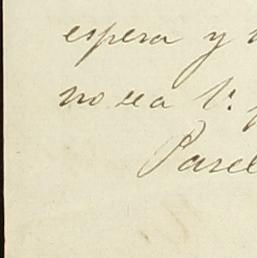 espera y
no sea 1º
Parel